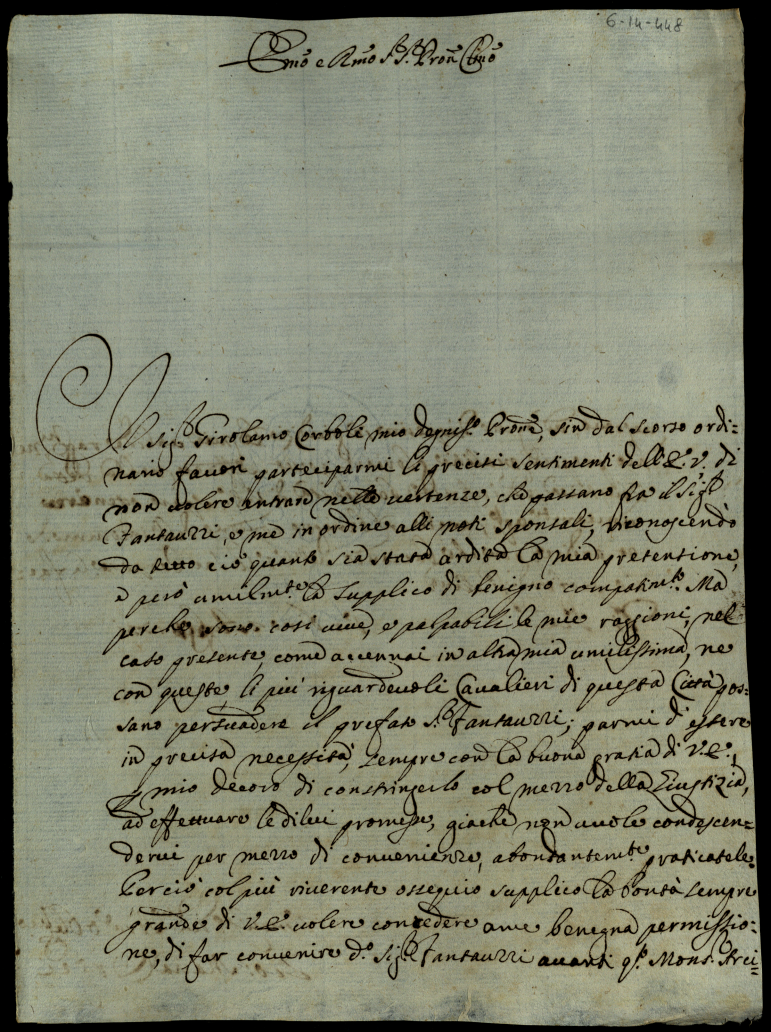 6-14-448
Emo e Rmo Sr. Sr. Pron Clmo
Il Sigr. Girolamo Corboli mio degnis.o Prone, sin dal scorso ordi=
nario favorì parteciparmi li precisi sentimenti dell'E.V. di
non volere entrare nelle vertenze, che passano fra il Sigr.
Fantauzzi, e me in ordine alli noti sponsali, riconoscendo
da tutto ciò quanto sia stata ardita la mia pretentione,
e però umilmte la supplico di benigno compatimto. Ma
perche sono così vive, e palpabili le mie raggioni, nel
caso presente, come accennai in altra mia umilissima, ne
con queste li più riguardevoli Cavalieri di questa Città pos=
sano persuadere il prefato Sr. Fantauzzi; parmi di essere
in precisa necessità, sempre con la buona gratia di V.E.,
e mio decoro di constringerlo col mezzo della Giustizia,
ad effettuare le di lui promesse, giache non vuole condescen=
dervi per mezzo di convenienze, abondantemte praticatele.
Perciò col più riverente ossequio supplico la bontà sempre
grande di V.E. volere concedere a me benegna permissio=
ne, di far convenire d.o Sigr. Fantauzzi avanti q.o Mons. Arci=